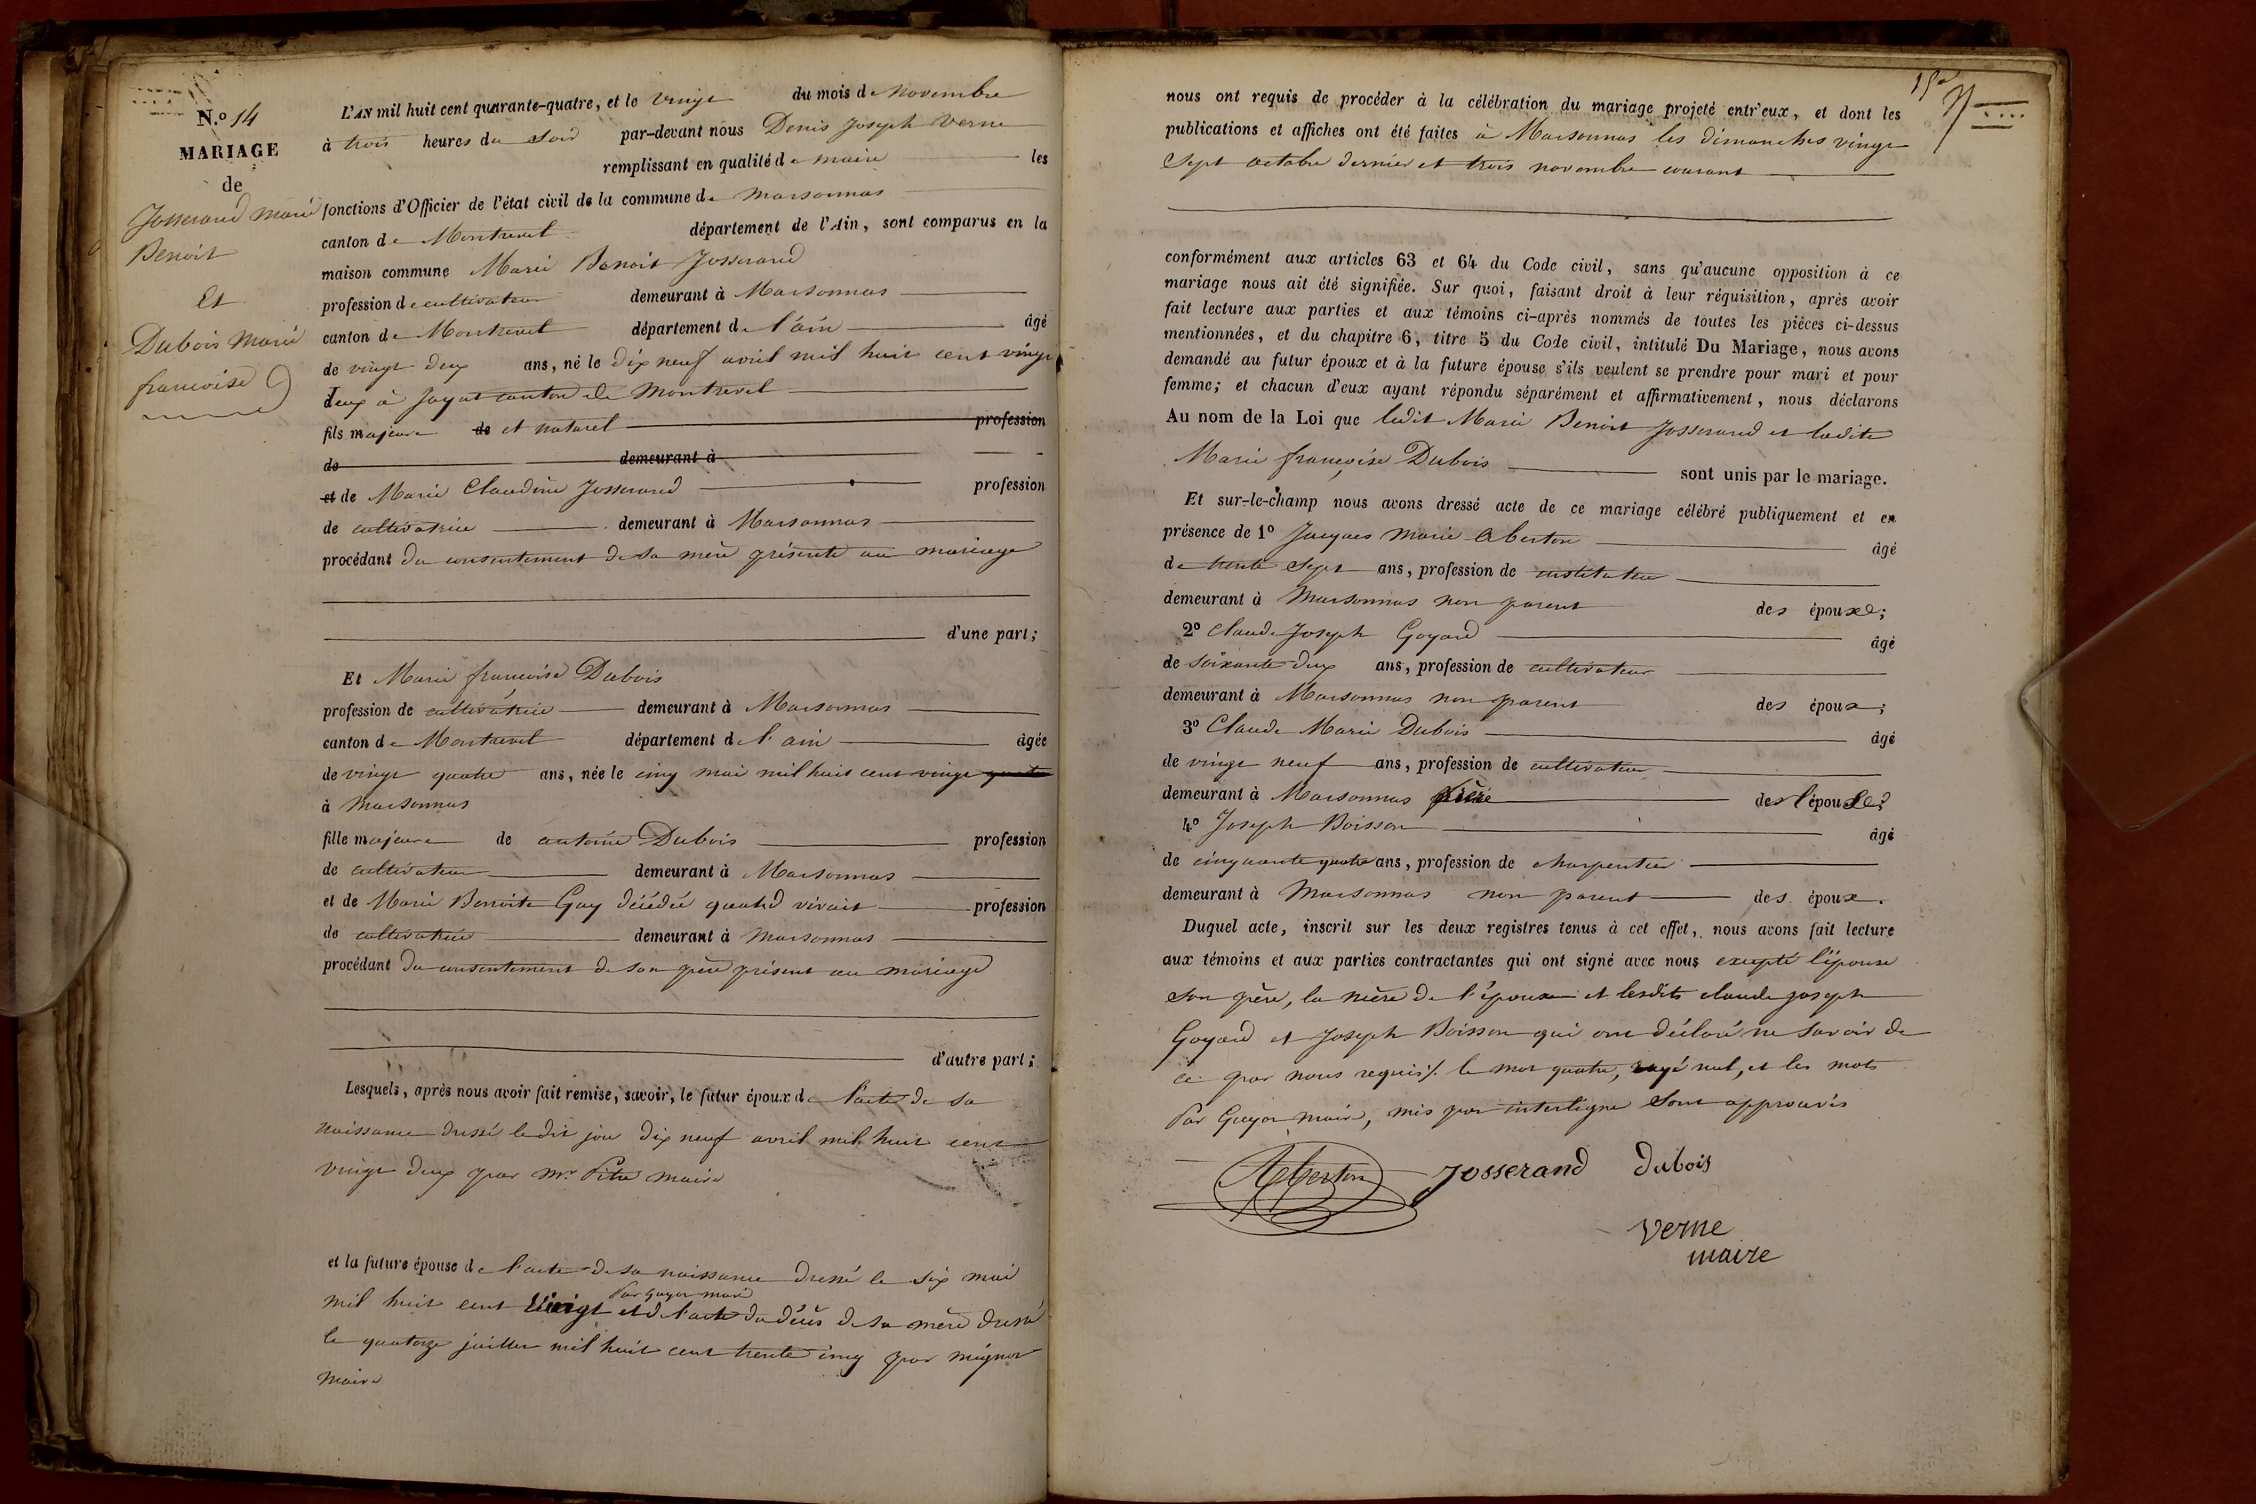 N.º 14
MARIAGE
de
Josserand marie
Benoit
Et
Dubois Marie
francoise
L'AN mil huit cent quarante-quatre, et le vingt du mois de novembre
à trois heures du soir par-devant nous Denis Joseph Verne
remplissant en qualité de maire les
fonctions d'Officier de l'état civil de la commune de marsonnas
canton de Montrevel département de l'Ain, sont comparus en la
maison commune Marie Benoit Josserand
profession de cultivateur demeurant à Marsonnas
canton de Montrevel département de l'ain âgé
de vingt deux ans, né le dix neuf avril mil huit cent vingt
deux à Jayat canton de Montrevel
fils majeur de et naturel profession
de demeurant à
et de Marie Claudine Josserand profession
de cultivatrice demeurant à Marsonnas
procédant du consentement de sa mère présente au mariage
d'une part;
Et Marie francoise Dubois
profession de cultivatrice demeurant à Marsonnas
canton de Montrevel département de l'ain âgée
de vingt quatre ans, née le cinq mai mil huit cent vingt quatre
à Marsonnas
fille majeure de antoine Dubois profession
de cultivateur demeurant à Marsonnas
et de Marie Benoite Gay décédée quand vivait profession
de cultivatrice demeurant à Marsonnas
procédant du consentement de son père présent au mariage
d'autre part;
Lesquels, après nous avoir fait remise, savoir, le futur époux de l'acte de sa
naissance dressé le dit jour dix neuf avril mil huit cent
vingt deux par mr. Pitre maire
et la future épouse de l'acte de sa naissance dressé le six mai
Par Guyon maire
mil huit cent vingt et de l'acte du décès de sa mère dressé
le quatorze juillet mil huit cent trente cinq par mignot
maire
15
nous ont requis de procéder à la célébration du mariage projeté entr'eux, et dont les
publications et affiches ont été faites à Marsonnas les dimanches vingt
sept octobre dernier et trois novembre courant
conformément aux articles 63 et 64 du Code civil, sans qu'aucune opposition à ce
mariage nous ait été signifiée. Sur quoi, faisant droit à leur réquisition, après avoir
fait lecture aux parties et aux témoins ci-après nommés de toutes les pièces ci-dessus
mentionnées, et du chapitre 6, titre 5 du Code civil, intitulé Du Mariage, nous avons
demandé au futur époux et à la future épouse s'ils veulent se prendre pour mari et pour
femme; et chacun d'eux ayant répondu séparément et affirmativement, nous déclarons
Au nom de la Loi que ledit Marie Benoit Josserand et ladite
Marie françoise Dubois sont unis par le mariage.
Et sur-le-champ nous avons dressé acte de ce mariage célébré publiquement et en
présence de 1º Jacques Marie Aberton âgé
de trente sept ans, profession de instituteur
demeurant à Marsonnas non parent des époux;
2º Claude Joseph Goyard âgé
de soixante deux ans, profession de cultivateur
demeurant à Marsonnas non parent des époux;
3º Claude Marie Dubois âgé
de vingt neuf ans, profession de cultivateur
demeurant à Marsonnas frère de l'épouse;
4º Joseph Boisson âgé
de cinquante quatre ans, profession de charpentier
demeurant à Marsonnas non parent des époux.
Duquel acte, inscrit sur les deux registres tenus à cet effet, nous avons fait lecture
aux témoins et aux parties contractantes qui ont signé avec nous excepté l'épouse
son père, la mère de l'époux et lesdits claude joseph
Goyard et Joseph Boisson qui ont déclaré ne savoir de
ce par nous requis ./. le mot quatre, rayé nul, et les mots
Par Guyon maire, mis par interligne sont approuvés
Aberton Josserand Dubois
Verne
maire